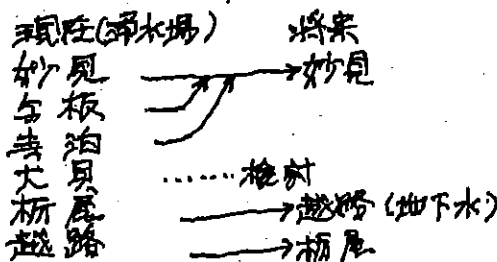 現在(浄水場) 将来
妙見 → 妙見
与板
寺泊
大貝 ‥‥‥ 検討
栃尾 → 越路(地下水)
越路 → 栃尾